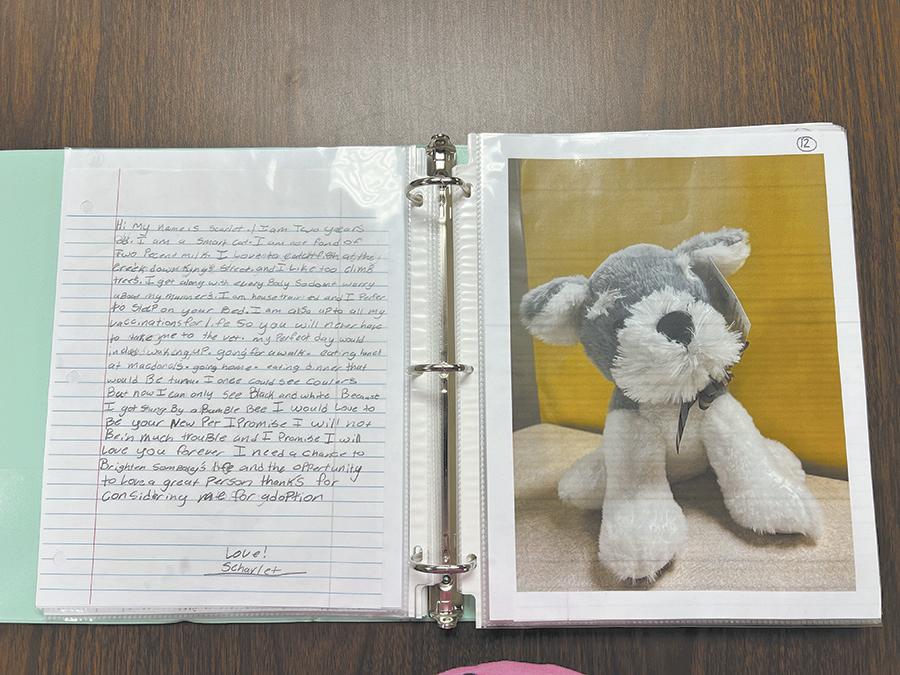 Hi My name is Scarlet. I am Two years
old. I am a smart cat. I am not fond of
Two Pecent milk. I Love to catch fish at the
creek down Kings Street and I Like too climb
trees. I get along with every Body So dont worry
about my manners. I am house trained and I Perfer
to sleap on your Bed. I am also up to all my
vaccinations for life so you will never have
to take me to the vet. my Perfect day would
waking up. going for a walk. eating lunch
at macdonals. going home. eating dinner that
would Be tunna. I once could see Coulers
But now I can only see Black and white Because
I got stung By a Bumble Bee I would Love to
Be your New Pet I Promise I will not
Bein much trouble and I Promise I will
Love you forever I need a chance to
Brighten Somebody's life and the oppertunity
to Love a great Person thanks for
considering me for adoption
Love!
Scharlet
12